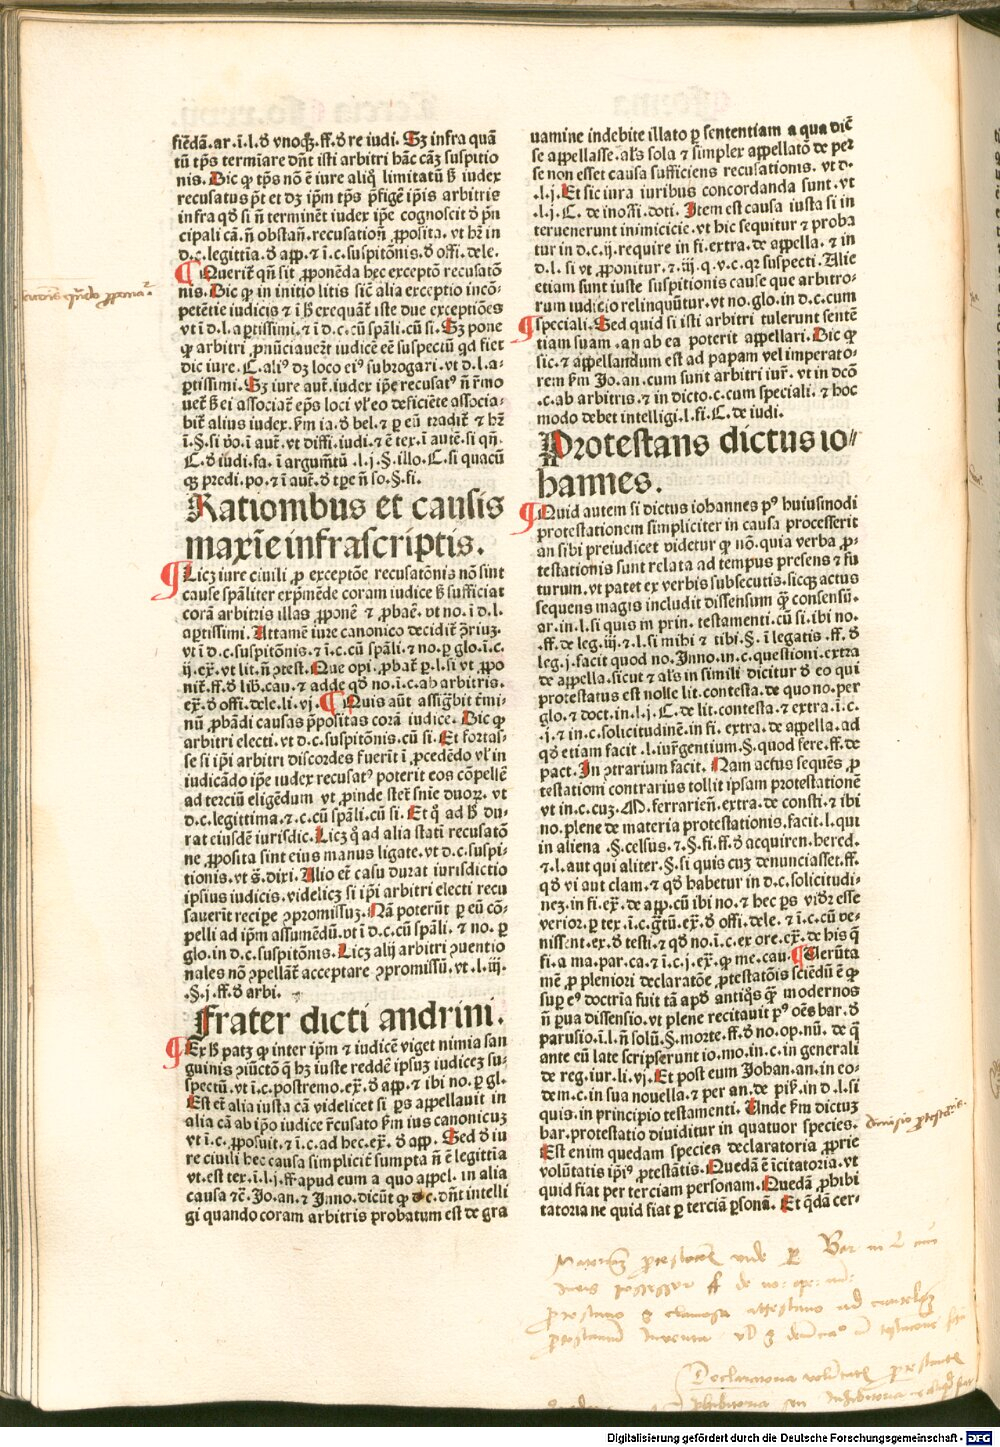 fiẽdã.ar.ĩ.l.ð vnoq̃.ff.ð re iudi. Sʒ infra quã
tũ tp̃s termiare dñt isti arbitri hãc cãʒ suspitio
nis. Dic ꝙ tp̃s nõ ẽ iure aliq̃ limitatũ ß iudex
recusatus p̃t et dʒ ip̃m tp̃s p̃figẽ ip̃is arbitris
infra qð si ñ terminẽt iudex ip̃e cognoscit ð p̃n
cipali cã.ñ obstañ.recusatioñ ꝓposita. vt hr̃ in
d.c.legittĩa.ð app.⁊ ĩ c.suspitõnis.ð offi.dele.
¶ Querit̃ qñ sit ꝓponẽda hec exceptõ recusatõ
nis. Dic ꝙ in initio litis sic̃ alia exceptio incõ-
petẽtie iudicis ⁊ ĩ ß exequãt̃ iste due exceptiões
vt ĩ d.l.aꝑtissimi.⁊ ĩ d.c.cũ spãli.cũ si. Sʒ pone
ꝙ arbitri ꝓnũciauer̃t iudicẽ eẽ suspectũ qd fiet
dic iure. C.aliꝰ dʒ loco eiꝰ subrogari.vt d.l.a-
ꝑtissimi. Sʒ iure aut̃.iudex ip̃e recusatꝰ ñ r̃mo
uet̃ ß ei associat̃ ep̃s loci vl̃ eo deficiẽte associa-
bit̃ alius iudex. ß̃m ia.ð bel.⁊ ꝑ eũ tradit̃ ⁊ hr̃
ĩ.§.si ṽo.ĩ aut̃.vt diffi.iudi.⁊ ẽ tex.ĩ autẽ.si qñ.
C.ð iudi.fa.ĩ argumt̃ũ .l.j.§.illo.C.si quacũ
qʒ predi.po.⁊ ĩ aut̃.ð tp̃e ñ so.§.fi.
Rationibus et causis
maxĩe infrascriptis.
¶ Licʒ iure ciuili ꝓ exceptõe recusatõnis nõ sint
cause spãliter exp̃mẽde coram iudice ß sufficiat
corã arbitris illas ꝓponẽ ⁊ ꝓbaẽ.vt no.ĩ d.l.
aꝑtissimi. Attamẽ iure canonico decidit̃ ꝯriuʒ.
vt ĩ d.c.suspitõnis.⁊ ĩ.c.cũ spãli.⁊ no.ꝑ glo.ĩ.c.
ij.ex̃.vt lit.ñ ꝯtest. Que opi.ꝓbat̃ ꝑ.l.si vt ꝓpo
nit̃.ff.ð lib.cau.⁊ adde qð no.ĩ.c.ab arbitris.
ex̃.ð offi.dele.li.vj. ¶ Quis aũt assigßit t̃mi-
nũ ꝓbãdi causas p̃positas corã iudice. Dic ꝙ
arbitri electi.vt d.c.suspitõnis.cũ si. Et fortas-
se si ip̃i arbitri discordes fuerit̃ ĩ ꝓcedẽdo vl̃ in
iudicãdo ip̃e iudex recusatꝰ poterit eos cõpellẽ
ad terciũ eligẽdum vt ꝓinde stet̃ sñie duoꝝ. vt
d.c.legittima.⁊ c.cũ spãli.cũ si. Et q̃ ad ß du-
rat eiusdẽ iurisdic. Licʒ q̃ ad alia stati recusatõ
ne ꝓposita sint eius manus ligate.vt d.c.suspi-
tionis.vt s̃.dixi. Alio et̃ casu durat iurisdictio
ipsius iudicis.videlicʒ si ip̃i arbitri electi recu
sauerit̃ recip̃e ꝯpromissuʒ. Nã poterũt ꝑ eũ cõ-
pelli ad ip̃m assumẽdũ.vt ĩ d.c.cũ spãli.⁊ no.ꝑ
glo.in d.c.suspitõnis. Licʒ alij arbitri ꝯuentio
nales nõ ꝯpellãt̃ acceptare ꝯpromissũ.vt .l.iij.
.§.j.ff.ð arbi.
Frater dicti andrini.
¶ Ex ß patʒ ꝙ inter ip̃m ⁊ iudicẽ viget nimia san
guinis ꝯiũctõ q̃ hʒ iuste reddẽ ipsuʒ iudiceʒ su-
spectũ.vt ĩ.c.postremo.ex̃.ð app.⁊ ibi no.ꝑ gl.
Est et̃ alia iusta cã videlicet si ꝑs appellauit in
alia cã ab ip̃o iudice r̃cusato ß̃m ius canonicuʒ
vt ĩ.c.ꝓposuit.⁊ ĩ.c.ad hec.ex̃.ð app. Sed ð iu
re ciuili hec causa simplicit̃ sumpta ñ ẽ legittĩa
vt.est tex.ĩ.l.j.ff.apud eum a quo appel.in alia
causa ⁊c̃.Jo.an.⁊ Inno.dicũt ꝙ d.c.dñt intelli
gi quando coram arbitris probatum est de gra
uamine indebite illato ꝑ sententiam a qua dic̃
se appellasse.al̃s sola ⁊ simplex appellatõ de per
se non esset causa sufficiens recusationis.vt d.
.l.j. Et sic iura iuribus concordanda sunt.vt
.l.j.C.de inoffi.doti. Item est causa iusta si in
teruenerunt inimicicie.vt hic sequitur ⁊ proba
tur in d.c.ij.require in fi.extra.de appella.⁊ in
d.l.si vt ꝓponitur.⁊.iij.q.v.c.qʒ suspecti. Alie
etiam sunt iuste suspitionis cause que arbitrio-
rum iudicio relinquũtur.vt no.glo.in d.c.cum
¶ speciali. Sed quid si isti arbitri tulerunt sentẽ
tiam suam.an ab ea poterit appellari. Dic ꝙ
sic.⁊ appellandum est ad papam vel imperato-
rem ß̃m Jo.an.cum sunt arbitri iur̃.vt in dc̃o
.c.ab arbitris.⁊ in dicto.c.cum speciali.⁊ hoc
modo debet intelligi.l.fi.C.de iudi.
Protestans dictus io
hannes.
¶ Quid autem si dictus iohannes pꝰ huiusmodi
protestationem simpliciter in causa processerit
an sibi preiudicet videtur ꝙ nõ.quia verba ꝓ-
testationis sunt relata ad tempus presens ⁊ fu
turum.vt patet ex verbis subsecutis.sicqʒ actus
sequens magis includit dissensum q̃ consensũ.
ar.in.l.si quis in prin.testamenti.cũ si.ibi no.
.ff.de leg.iij.⁊.l.si mihi ⁊ tibi.§.ĩ legatis.ff.ð
leg.j.facit quod no.Inno.in.c.questioni.extra
de appella.sicut ⁊ al̃s in simili dicitur ð eo qui
protestatus est nolle lit.contesta.de quo no.per
glo.⁊ doct.in.l.j.C.de lit.contesta.⁊ extra.ĩ c.
.j.⁊ in c.solicitudinẽ.in fi.extra.de appella.ad
qð etiam facit .l.iur̃gentium.§.quod fere.ff.de
pact. In ꝯtrarium facit. Nam actus sequẽs ꝓ
testationi contrarius tollit ipsam protestationẽ
vt in.c.cuʒ.M.ferrarieñ.extra.de consti.⁊ ibi
no.plene de materia protestationis.facit.l.qui
in aliena .§.celsus.⁊.§.fi.ff.ð acquiren.hered.
⁊.l.aut qui aliter.§.si quis cuʒ denunciasset.ff.
qð vi aut clam.⁊ qð habetur in d.c.solicitudi-
neʒ.in fi.ex̃.de app.cũ ibi no.⁊ hec ꝑs vid̃r esse
verior.ꝑ tex.ĩ.c.g̃tũ.ex̃.ð offi.dele.⁊ ĩ.c.cũ ve-
nissent.ex.ð testi.⁊ qð no.ĩ.c.ex ore.ex̃.de his q̃
fi.a ma.par.ca.⁊ ĩ.c.j.ex̃.ꝙ me.cau. ¶ Uerũta
mẽ ꝓ pleniori declaratõe ꝓtestatõis sciẽdũ ẽ ꝙ
suꝑ eꝰ doctrĩa fuit tã apð antiq̃s q̃ modernos
ñ ꝑua dissensio.vt plene recitauit pꝰ oẽs bar.ð
parusio.ĩ.l.ñ solũ.§.morte.ff.ð no.op.nũ. de q̃
ante eũ late scripserunt io.mo.in.c.in generali
de reg.iur.li.vj. Et post eum Johan.an.in eo-
dem.c.in sua nouella.⁊ per an.de pis̃.in d.l.si
quis.in principio testamenti. Unde ß̃m dictuʒ
bar.protestatio diuiditur in quatuor species.
Est enim quedam species declaratoria ꝓprie
volũtatis ip̃iꝰ ꝓtestãtis. Quedã ẽ ĩcitatoria.vt
quid fiat per terciam personam. Quedã ꝓhibi
tatoria ne quid fiat ꝑ terciã ꝑsonã. Et q̃dã cer-
diuisio ꝓtestãtis.
Declaratoria
Digitalisierung gefördert durch die Deutsche Forschungsgemeinschaft - DFG